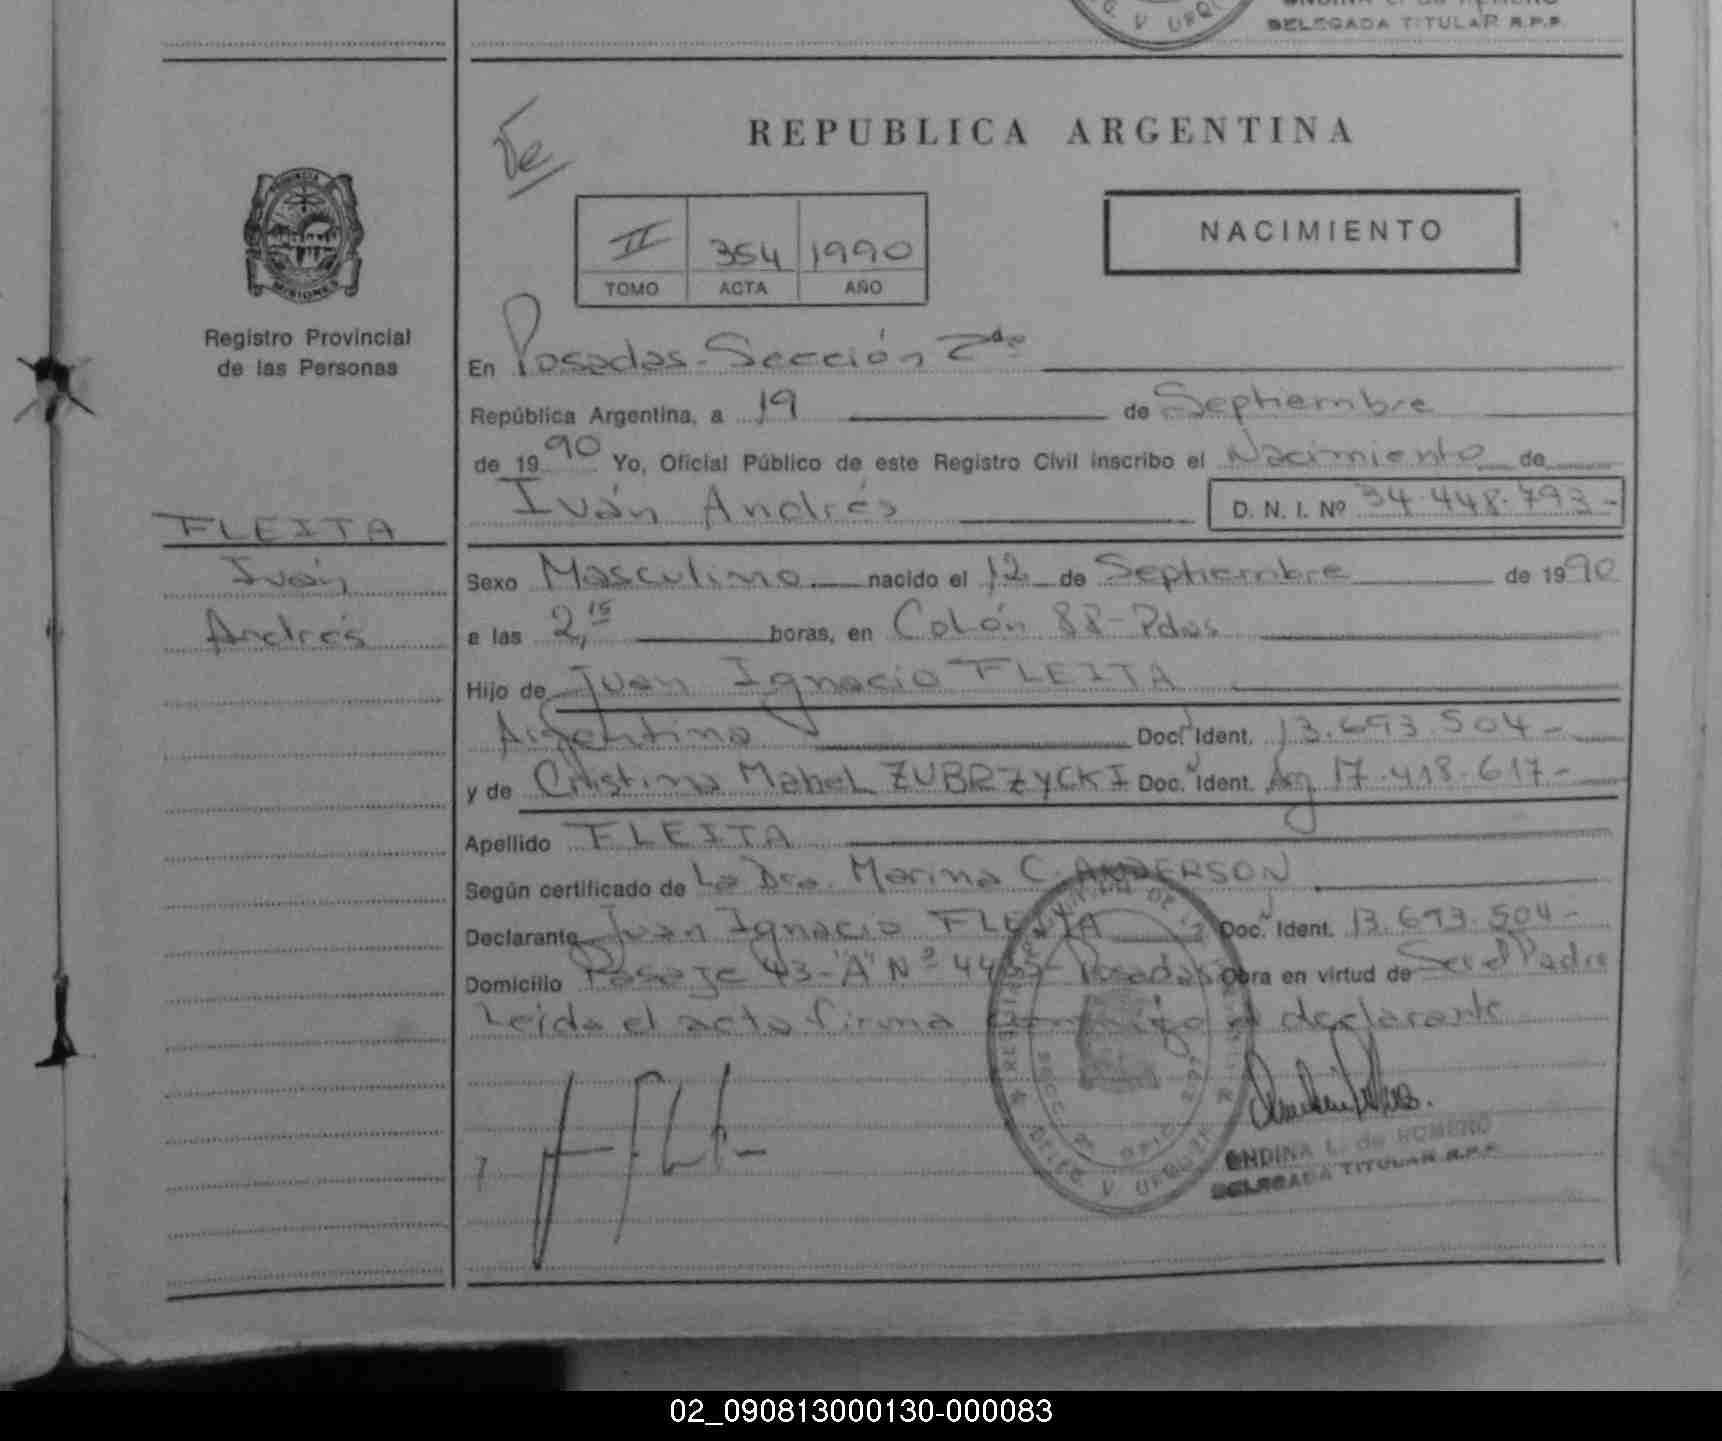 DELEGADA TITULAR R.P.P.
REPUBLICA ARGENTINA
NACIMIENTO
II 354 1990
TOMO ACTA AÑO
MISIONES
Registro Provincial
de las Personas
En Posadas - Sección 2da
República Argentina, a 19 de Septiembre
de 1990 Yo, Oficial Público de este Registro Civil inscribo el Nacimiento de
Iván Andrés D. N. I. Nº 34.448.793-
FLEITA
Iván
Andrés
Sexo Masculino nacido el 12 de Septiembre de 1990
a las 2,15 horas, en Colón 88 - Pdas
Hijo de Juan Ignacio FLEITA
Argentino Doc. Ident. 13.693.504-
y de Cristina Mabel ZUBRZYCKI Doc. Ident. Arg 17.418.617-
Apellido FLEITA
Según certificado de La Dra. Marina C. ANDERSON
Declarante Juan Ignacio FLEITA Doc. Ident. 13.693.504-
Domicilio Pasaje 43-"A" Nº Posadas Obra en virtud de Ser el Padre
Leída el acta firma conmigo el declarante
ONDINA L. de ROMERO
DELEGADA TITULAR R.P.P.
02_090813000130-000083